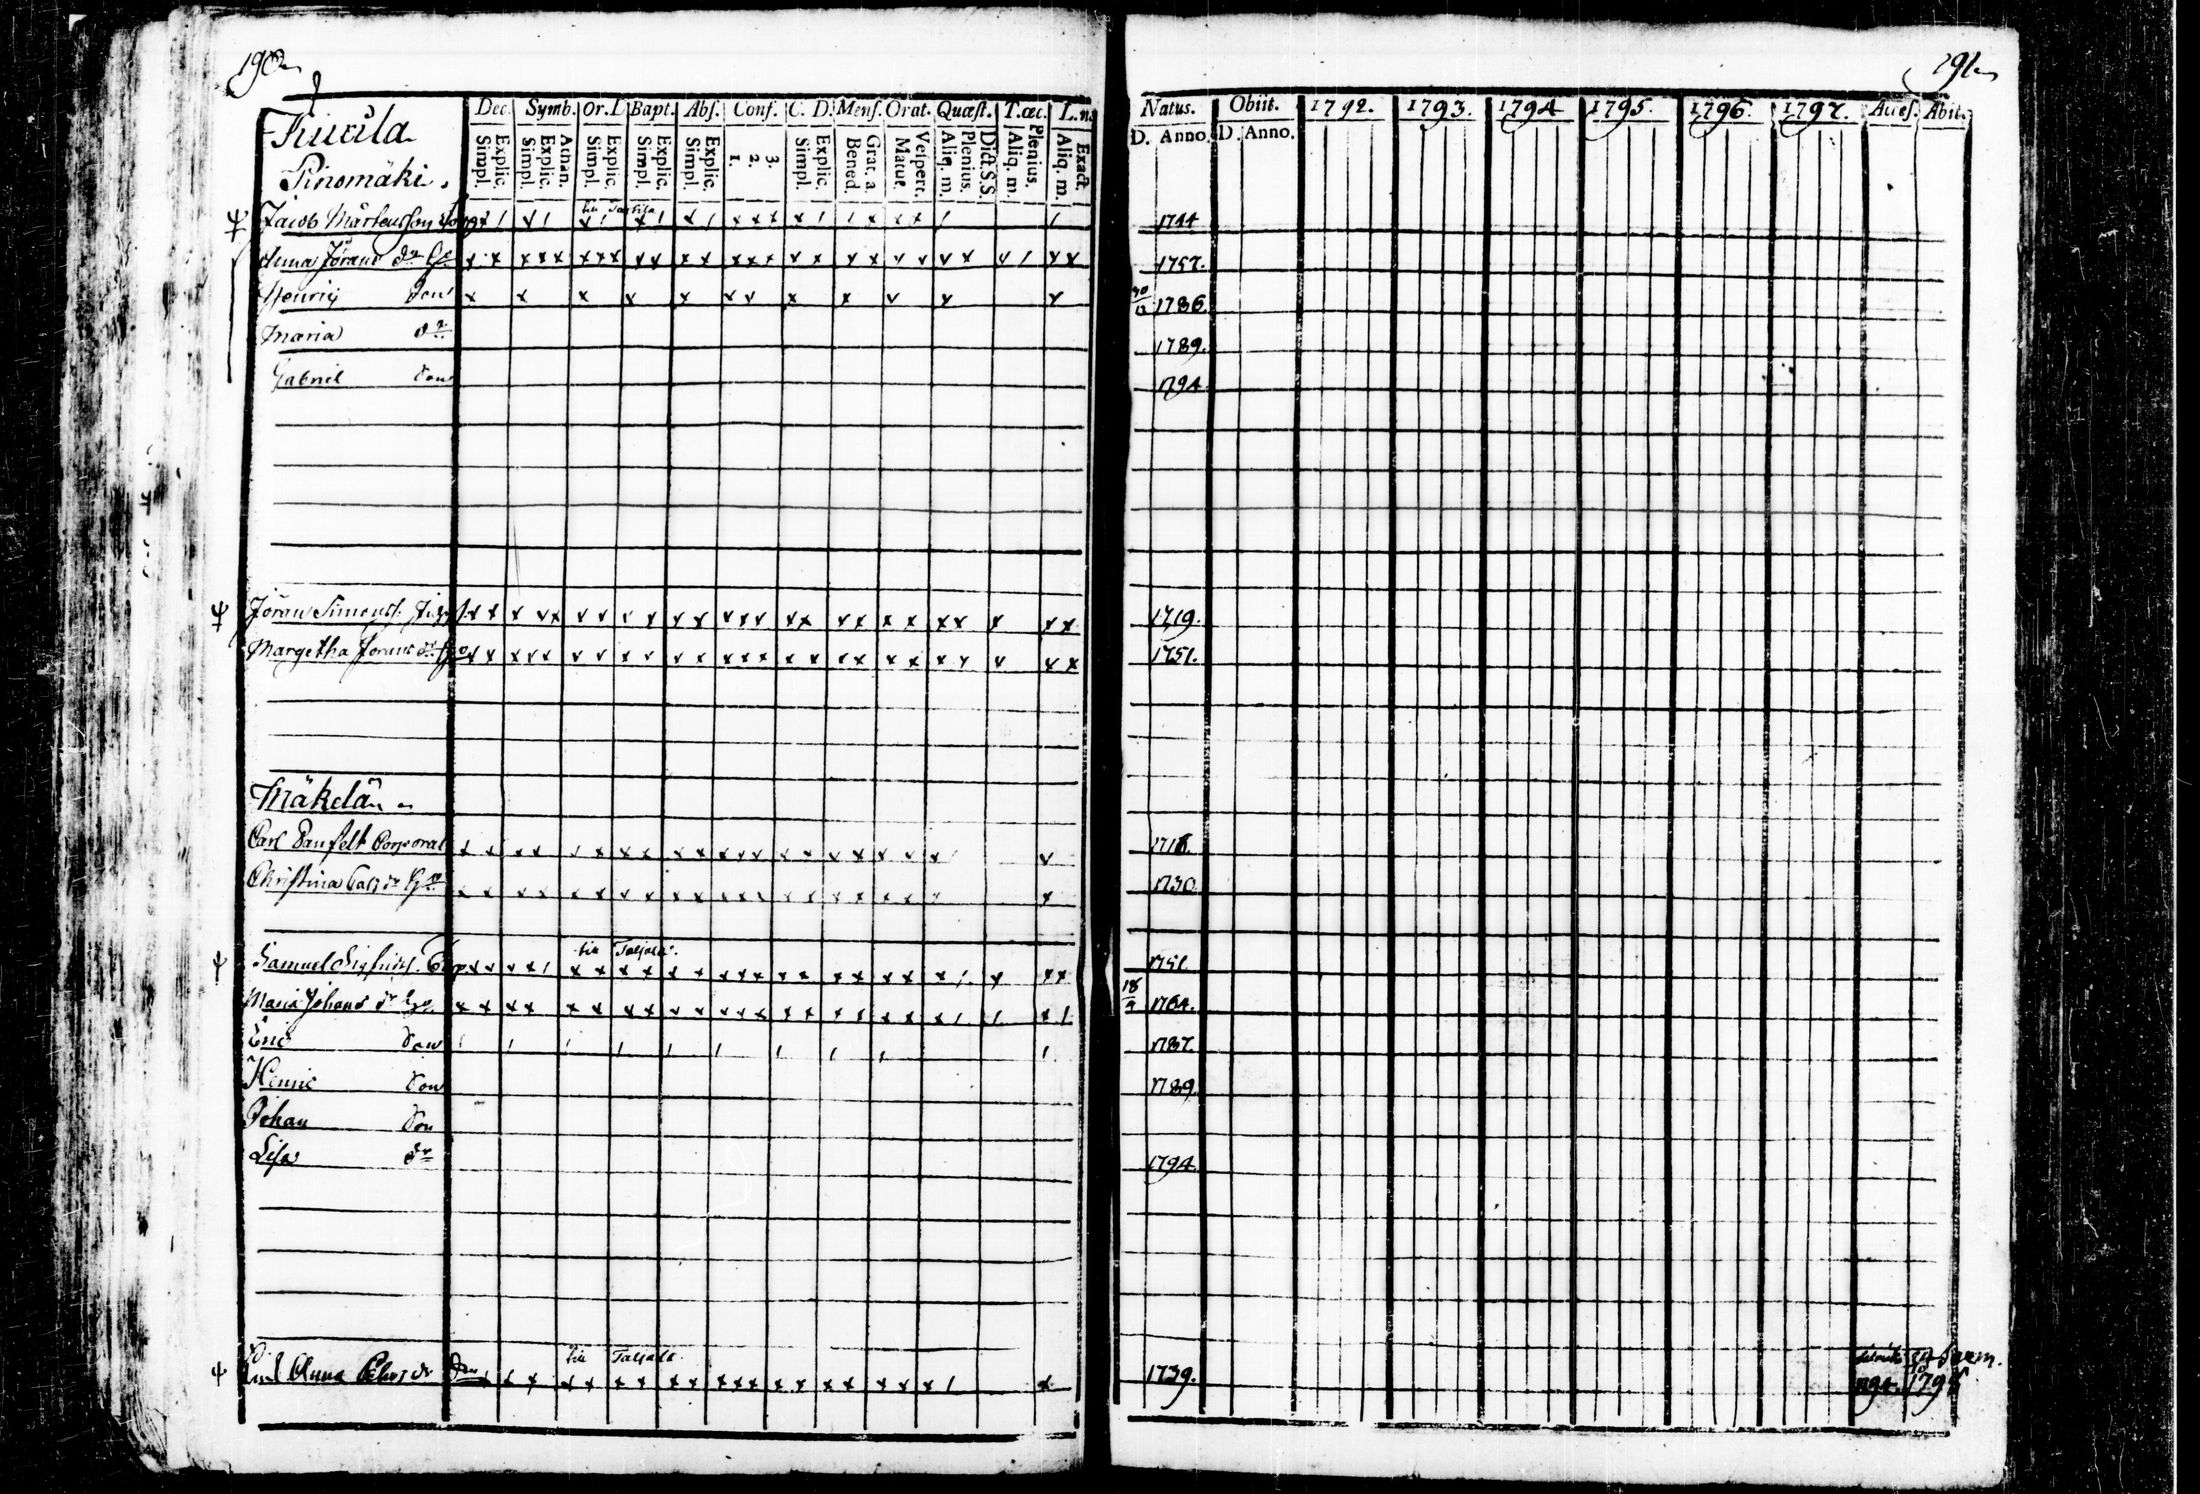 190
Dec. Symb. Or. D Bapt. Abs. Conf. C. D. Mens. Orat. Quæst. T.œc. L.ns
Explic. Simpl. Athan. Explic. Simpl. Explic. Simpl. Explic. Simpl. Explic. Simpl. 3. 2. 1. Explic. Simpl. Grat. a Bened. Vespert. Matut. Dict. S.S. Plenius. Aliq. m. Plenius. Aliq. m. Exact. Aliq. m.
Pinomäki.
Jacob Mårtensson
Anna Jörans dr
Henric Son
Maria dr
Gabriel Son
Jöran Simonss.
Margetha Jörans dr
Mäkelä
Carl Danfelt Corporal
Christina
till Taljala
Samuel Sigfrids. Torp
Maria Johans dr
Eric Son
Henric Son
Johan Son
Lisa dr
till Taljala
Anna Peters dr
291
Natus. Obiit. 1792. 1793. 1794 1795. 1796. 1797. Acces. Abit.
D. Anno. D. Anno.
1744
1757.
30/12 1786.
1789.
1794
1719.
1751.
1730
1751
18/9 1764.
1787.
1789.
1794
1739.